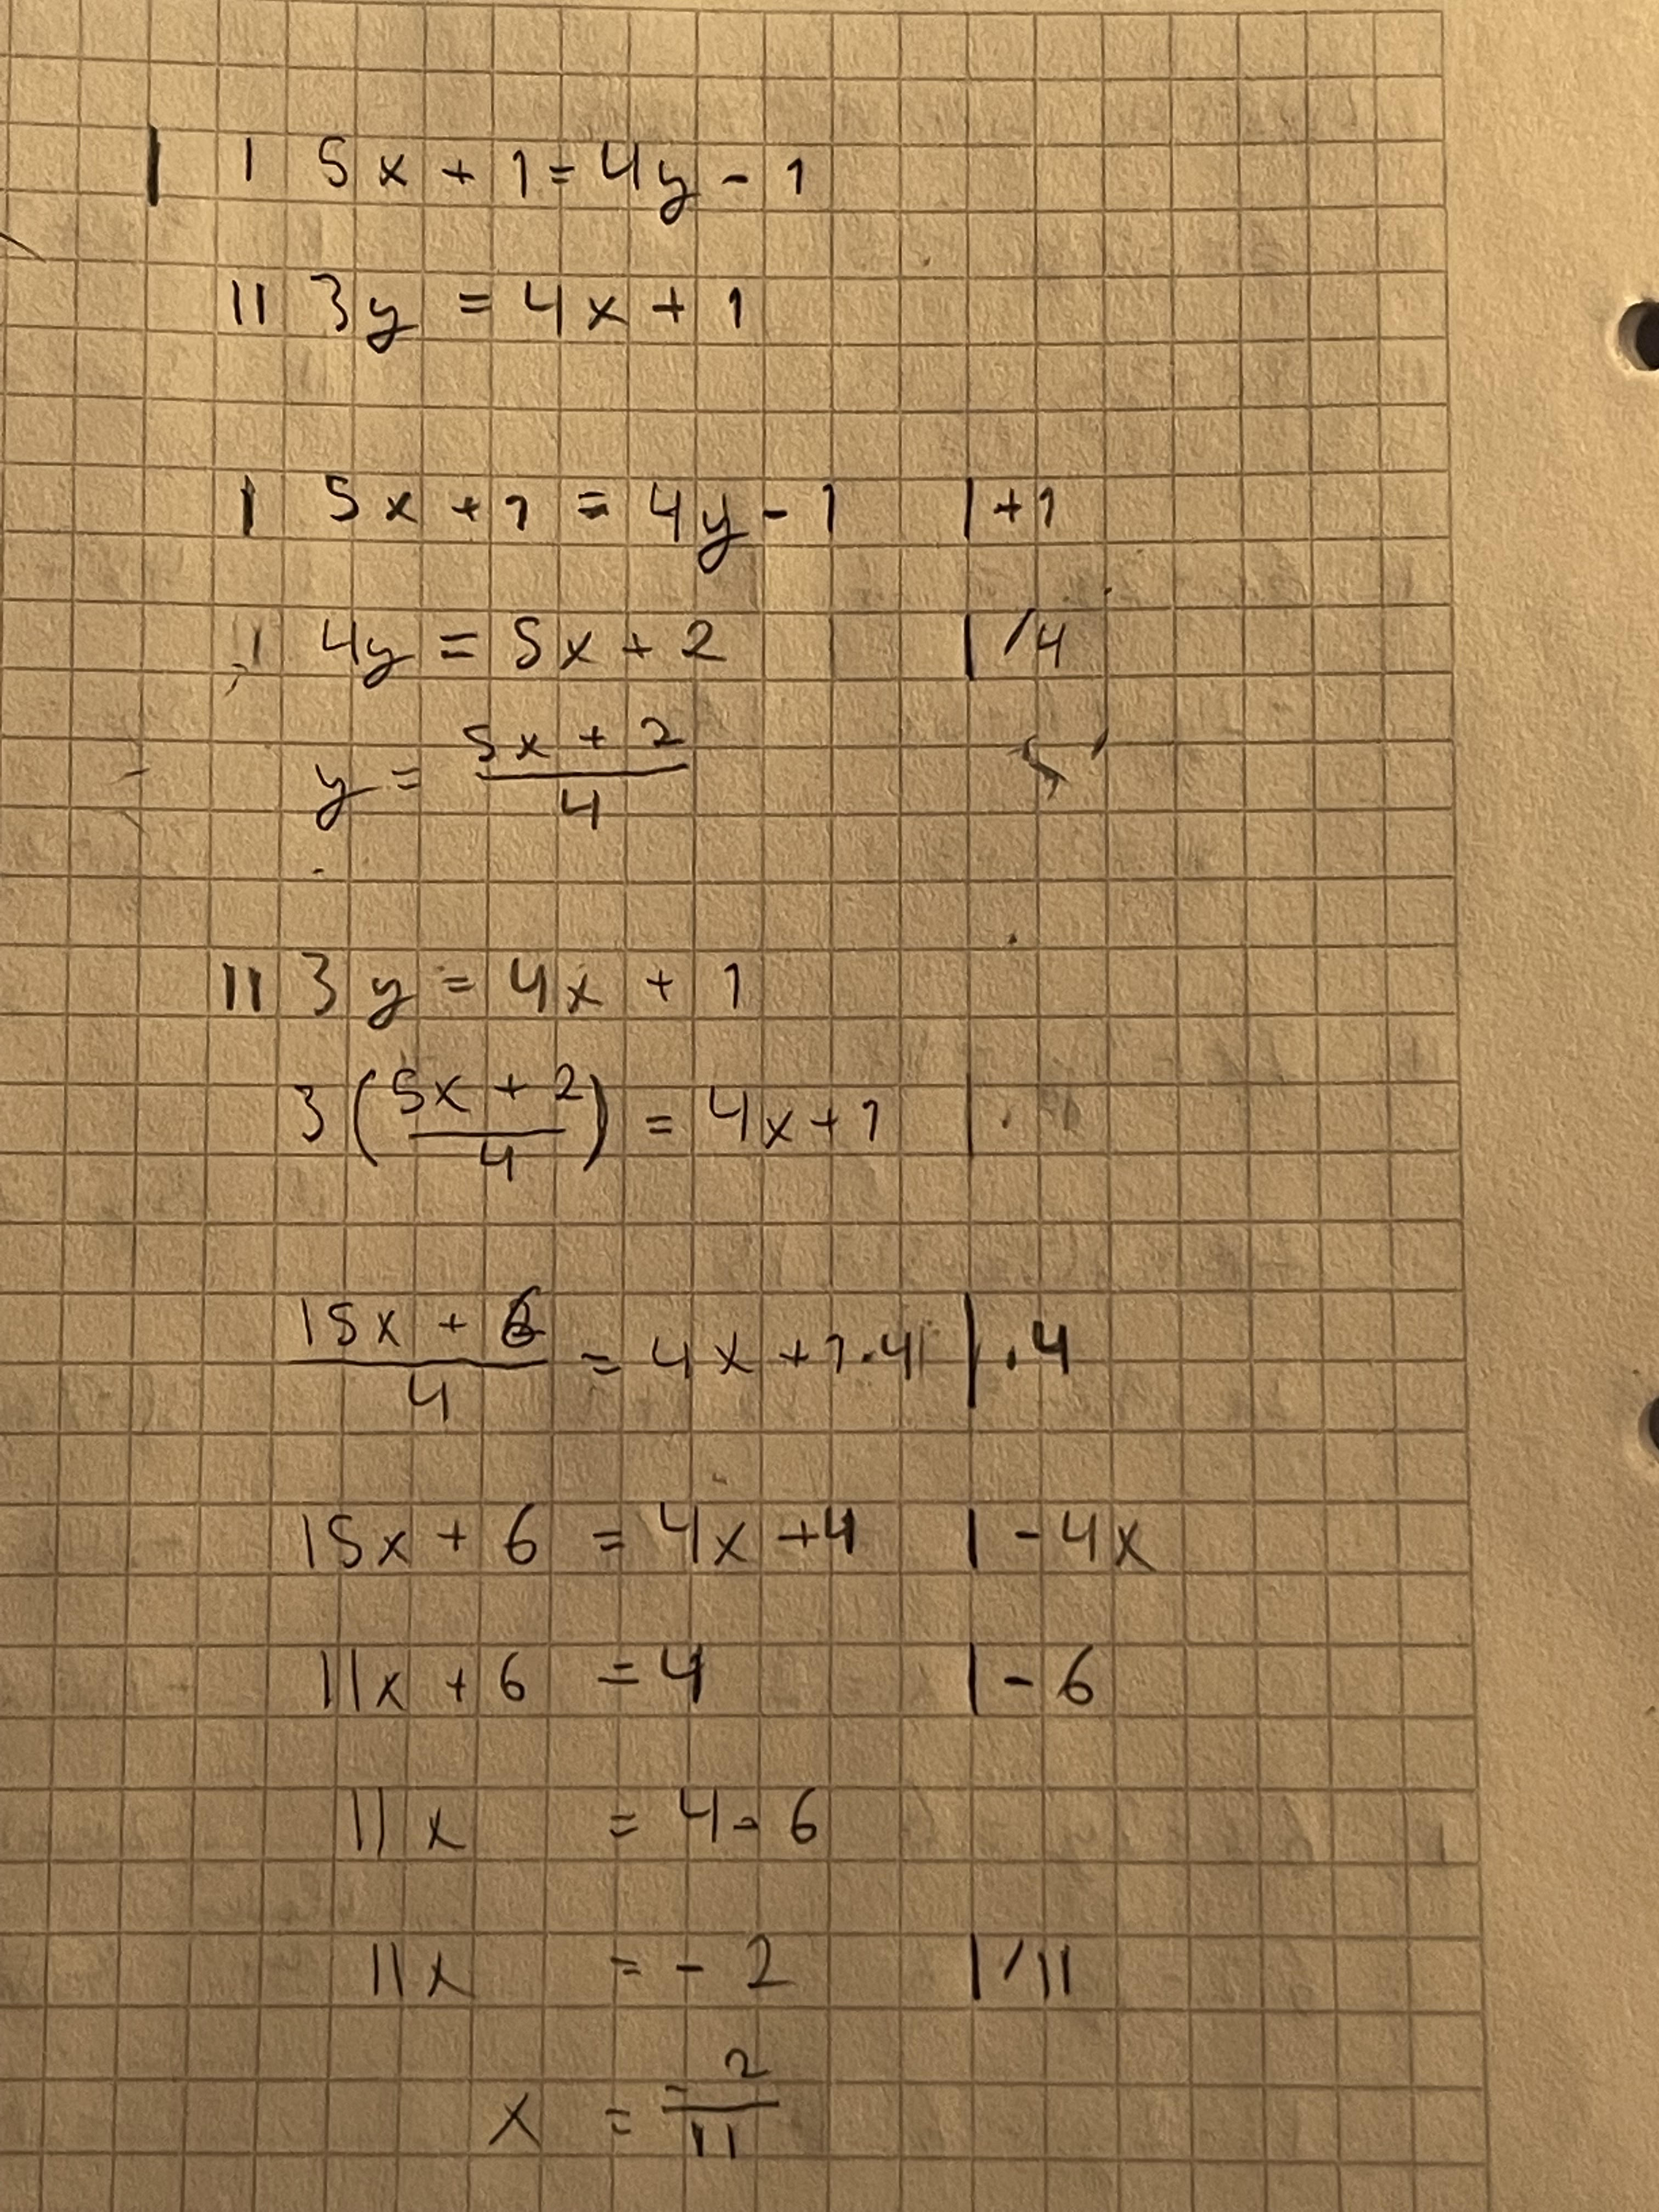 I 5x + 1 = 4y - 1
II 3y = 4x + 1
I 5x + 1 = 4y - 1 | +1
I 4y = 5x + 2 | /4
y = \frac{5x + 2}{4}
II 3y = 4x + 1
3(\frac{5x + 2}{4}) = 4x + 1 | ·
\frac{15x + 6}{4} = 4x + 1 · 4 | · 4
15x + 6 = 4x + 4 | - 4x
11x + 6 = 4 | - 6
11x = 4 - 6
11x = - 2 | /11
x = \frac{- 2}{11}